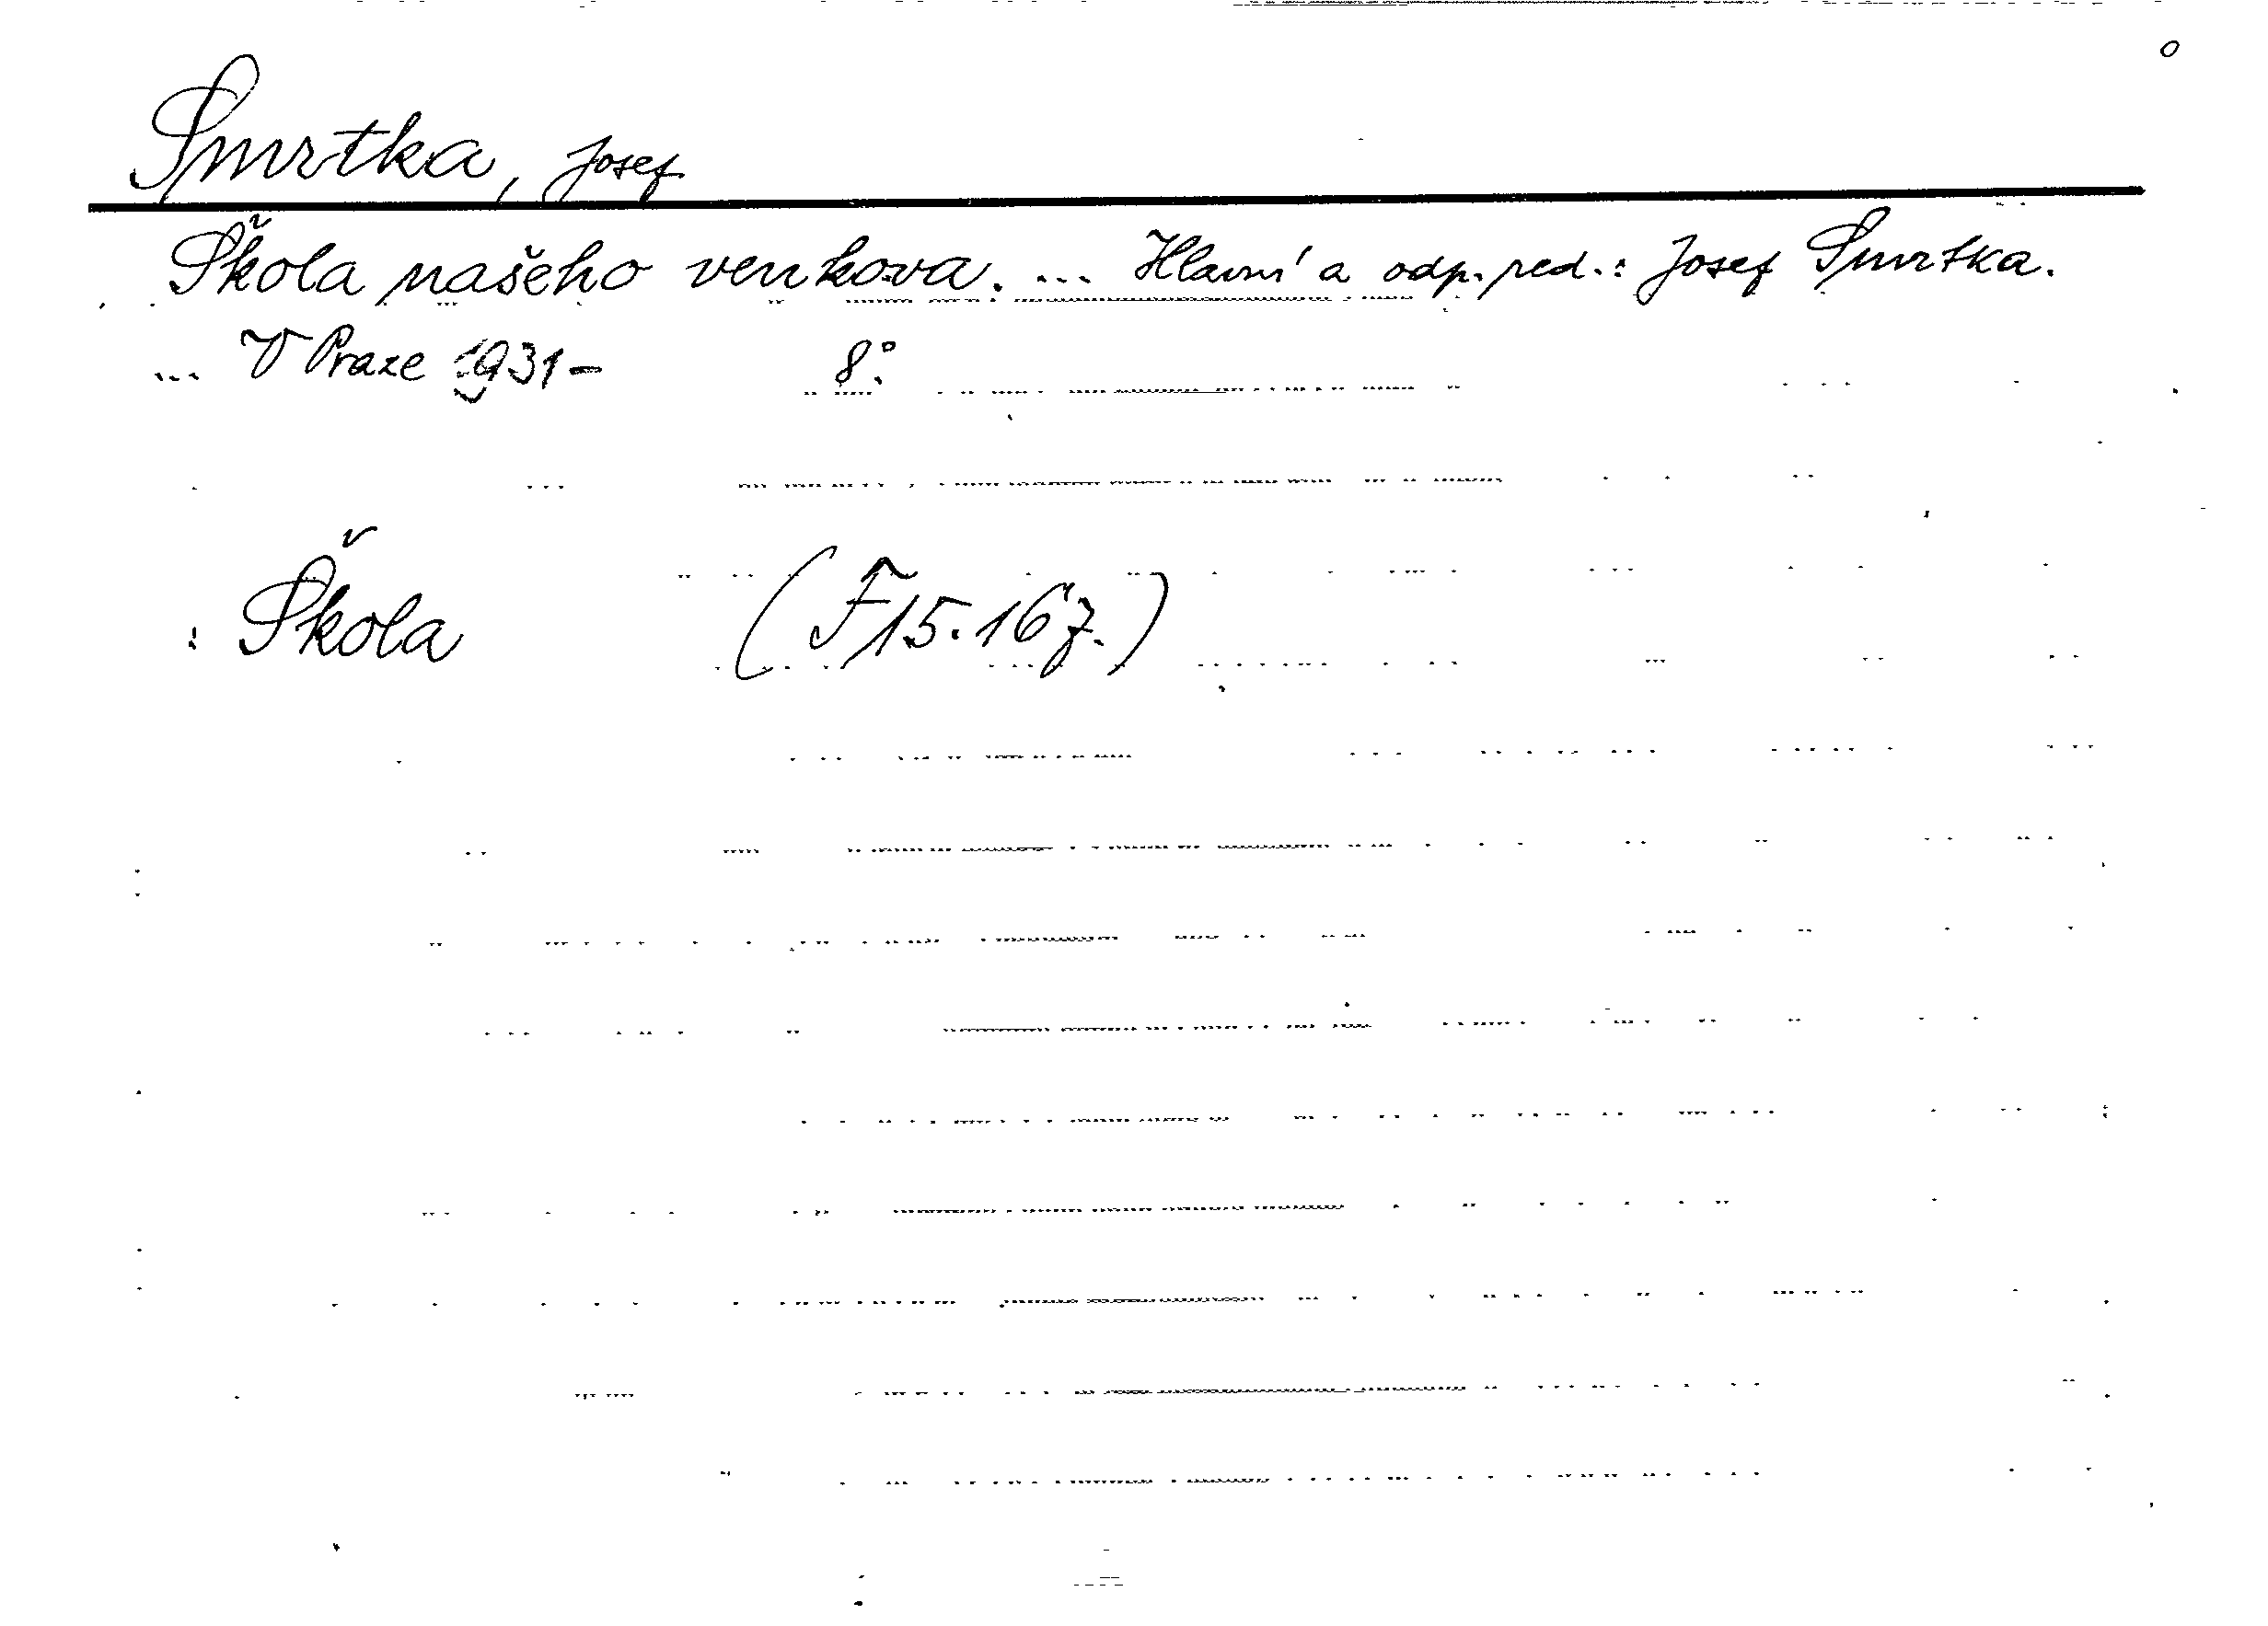 Smrtka, Josef
Škola našeho venkova. ... Hlavní a odp. red.: Josef Smrtka.
... V Praze 1931- 8°.
: Škola (F 15.167.)